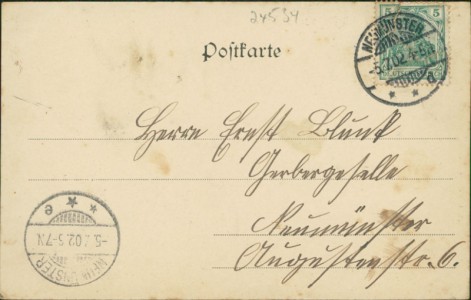 24534
5 5
NEUMÜNSTER
-5.7.02.4-5N.
* d *
Postkarte
Herrn Ernst Blunk
Gerbergeselle
Neumünster
Augustenstr. 6.
* e *
-5.7.02.5-7N
NEUMÜNSTER